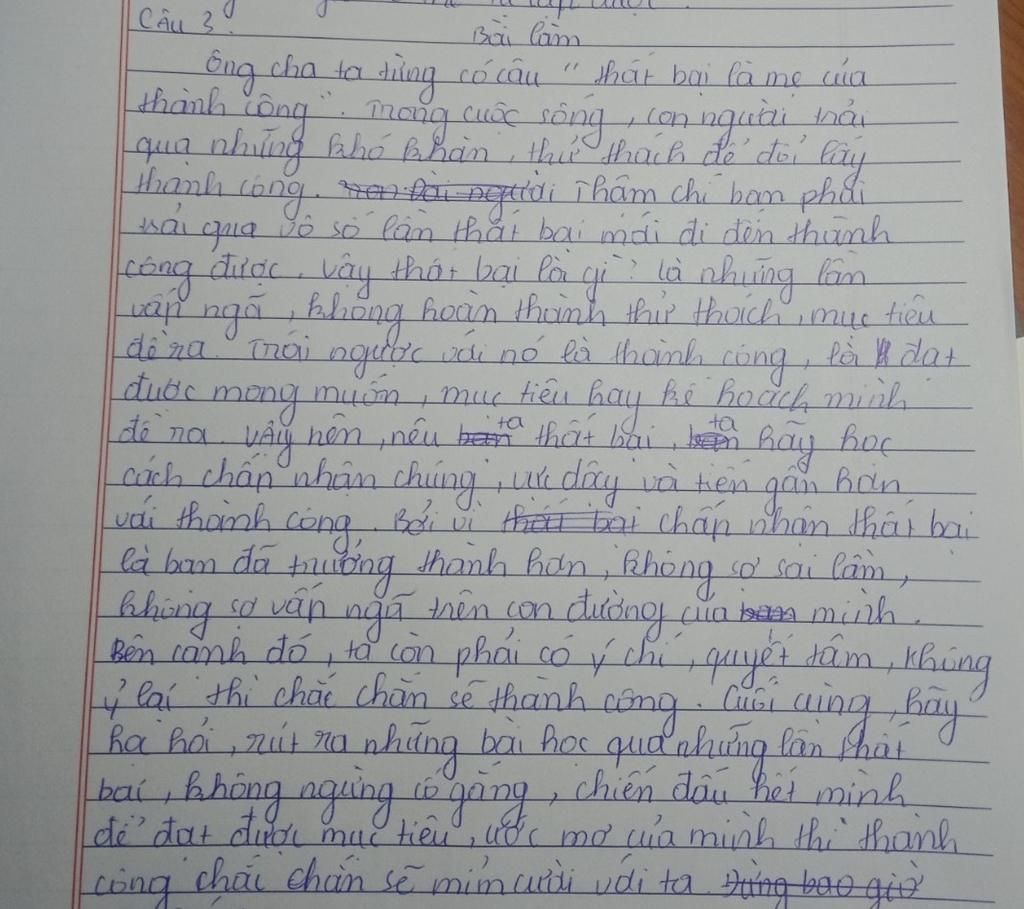 Câu 3.
Bài làm
Ông cha ta từng có câu "thất bại là mẹ của
thành công". Trong cuộc sống, con người trải
qua những khó khăn, thử thách để đổi lấy
thành công. Thậm chí bạn phải
trải qua vô số lần thất bại mới đi đến thành
công được. Vậy thất bại là gì? Là những lần
vấp ngã, không hoàn thành thử thách, mục tiêu
đề ra. Trái ngược với nó là thành công, là đạt
được mong muốn, mục tiêu hay kế hoạch mình
đề ra. Vậy nên, nếu ta thất bại, ta hãy học
cách chấp nhận chúng, vực dậy và tiến gần hơn
với thành công. Bởi vì chấp nhận thất bại
là bạn đã trưởng thành hơn, không sợ sai lầm,
không sợ vấp ngã trên con đường của mình.
Bên cạnh đó, ta còn phải có ý chí, quyết tâm, không
ỷ lại thì chắc chắn sẽ thành công. Cuối cùng, hãy
học hỏi, rút ra những bài học qua những lần thất
bại, không ngừng cố gắng, chiến đấu hết mình
để đạt được mục tiêu, ước mơ của mình thì thành
công chắc chắn sẽ mỉm cười với ta. Đừng bao giờ